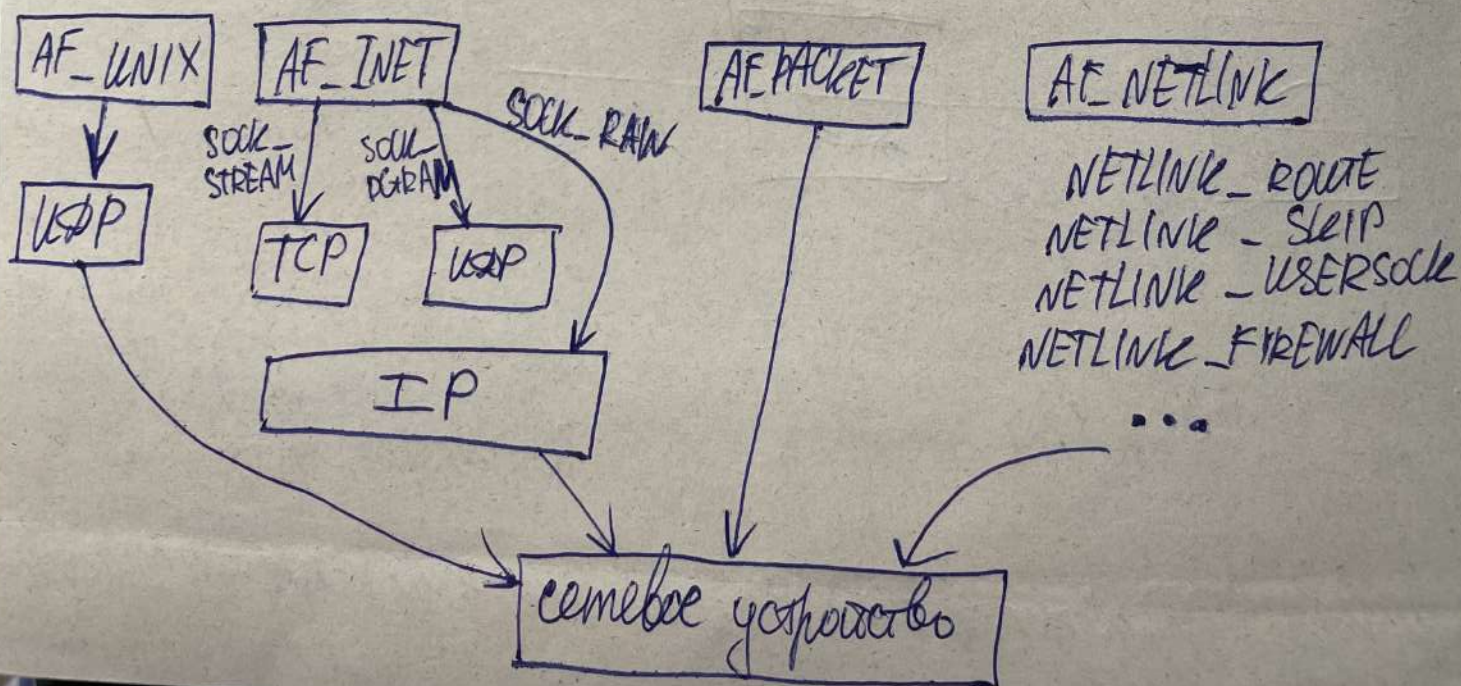 AF_UNIX
AF_INET
AF_PACKET
AF_NETLINK
SOCK_
STREAM
SOCK_
DGRAM
SOCK_RAW
UDP
TCP
UDP
IP
NETLINK_ROUTE
NETLINK_SKIP
NETLINK_USERSOCK
NETLINK_FIREWALL
...
сетевое устройство